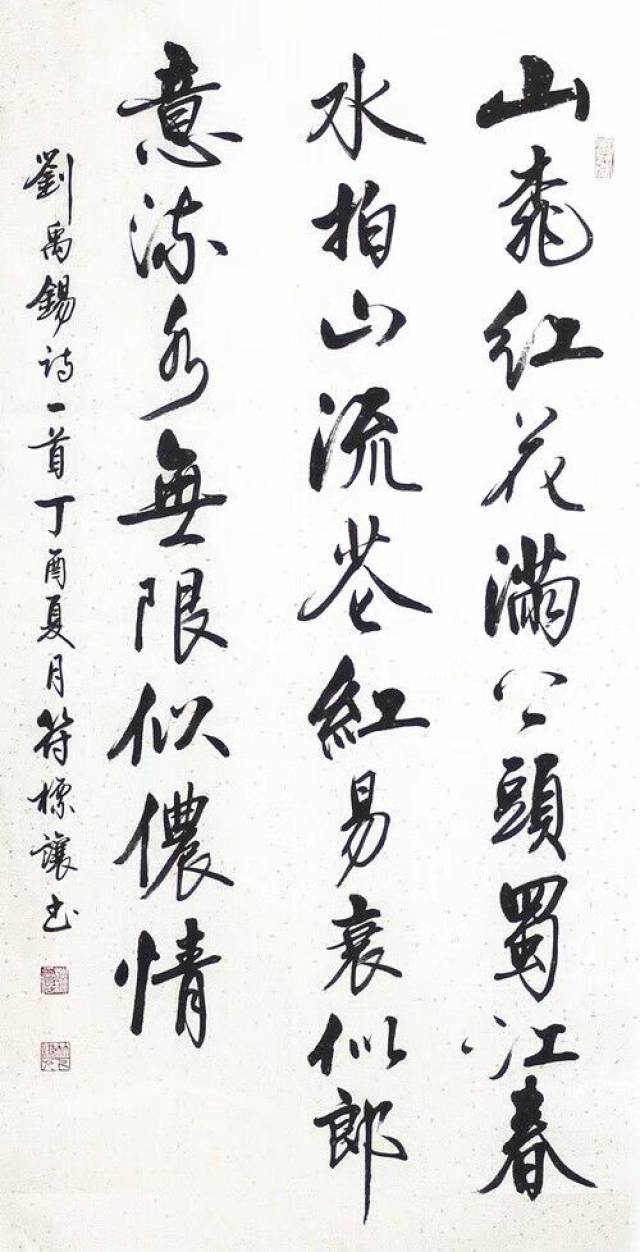 山桃红花满上頭蜀江春
水拍山流花紅易衰似郎
意流水無限似儂情
劉禹錫诗一首丁酉夏月符標讓书